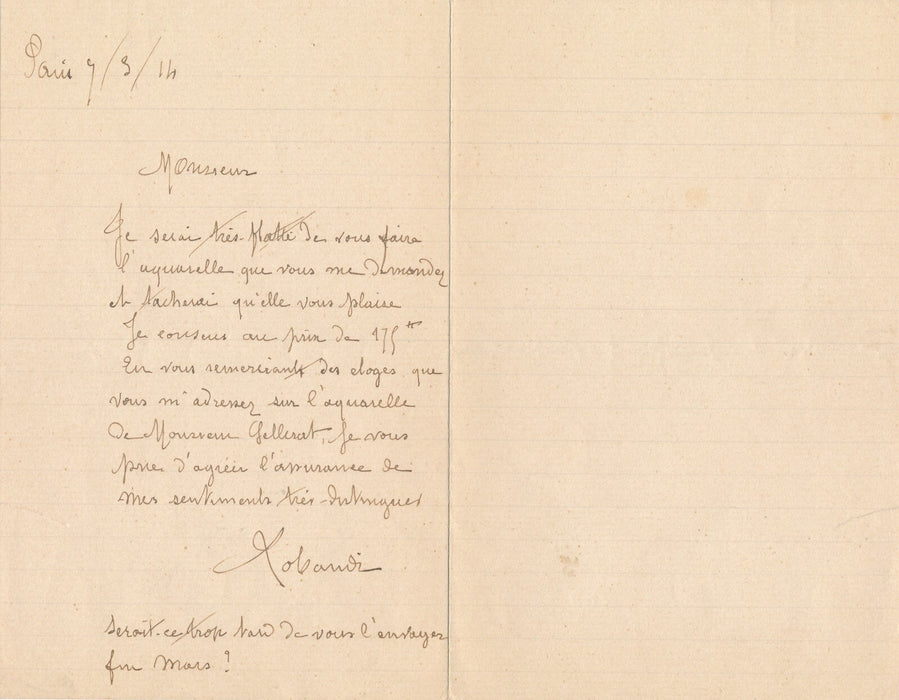 Paris 7/3/14
Monsieur
Je serai très flatté de vous faire
l'aquarelle que vous me demandez
et tacherai qu'elle vous plaise
Je consens au prix de 175
En vous remerciant des eloges que
vous m'adressez sur l'aquarelle
de Monsieur Gellerat, Je vous
prie d'agréer l'assurance de
mes sentiments très-distingués
Robaudi
Serait-ce trop tard de vous l'envoyer
fin Mars ?